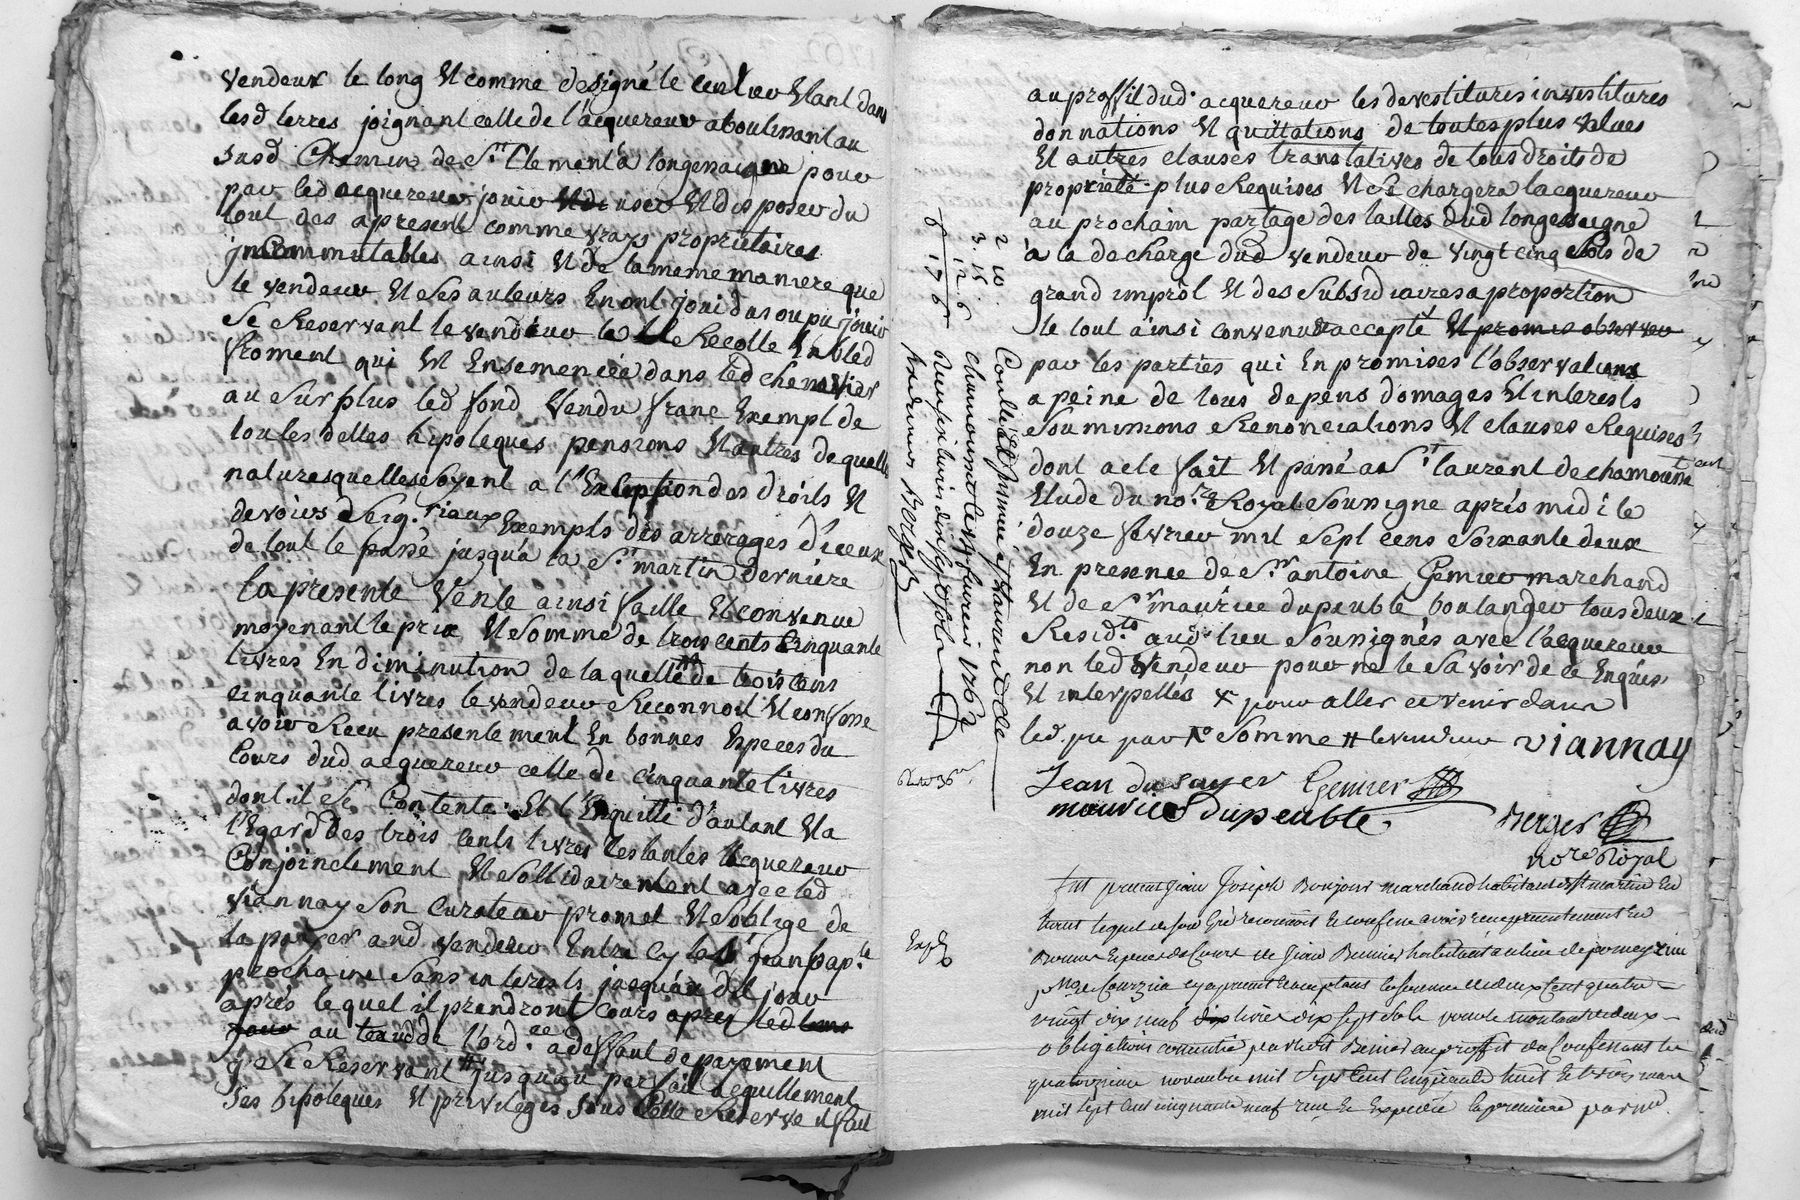 vendeur le long et comme designé le cutieu Etant dans
lesd terres joignant celle de l'acquereur aboutissant au
susd Chemin de St Clement à longessaigne pour
par led acquereur jouir et de user et disposer du
tout des apresent comme vrays propriétaires
incommutables ainsi et de la meme maniere que
le vendeur et ses auteurs En ont joui dus ou pu jouir
Se Reservant le vendeur la Recolte En bled
froment qui est Ensemencée dans led chenevier
au surplus led fond Vendu franc Exempt de
toutes dettes hipoteques pensions et autres de quelle
natures quelles soyent a l'Exception des droits et
devoirs Seig.riaux Exempts des arrerages d'iceux
de tout le passé jusqu'a la St martin derniere
la presente vente ainsi faitte et convenue
moyenant le prix et somme de trois cents Cinquante
livres En diminution de laquelle de trois cens
cinquante livres le vendeur Reconnoit et confesse
avoir Receu presentement En bonnes Especes du
Cours dud acquereur celle de cinquante livres
dont il se Contente et l'Enquitte d'autant Et a
l'Egard des trois cents livres restantes l'acquereur
Conjoinctement et sollidairement avec led
viannay son curateur promet et s'oblige de
la payer aud vendeur Entre cy la St jean bap.te
prochaine sans interests jusqu'au dit jour
après lequel il prendront cours après led tems
jour au taud de l'ord.ce a deffaut de payement
Se Reservant jusquau parfait acquittement
ses hipoteques et privileges sous cette Reserve il fait
au proffit dud. acquereur les devestitures investitures
donnations et quittations de toutes plus values
Et autres clauses translatives de tous droits de
propriété plus Requises et se chargera lacquereur
au prochain partage des tailles dud longessaigne
à la decharge dud vendeur de vingt cinq sols de
grand impôt et des subsidiaires a proportion
le tout ainsi convenu accepté et promis observer
par les parties qui En promises l'observations
a peine de tous depens domages Et interests
soumissions Renonciations et clauses Requises
dont acte fait et passé a St laurent de chamousset
Etude du no.re Royal soussigne après midi le
douze fevrier mil sept cens soixante deux
En presence de Sr antoine Gemier marchand
et de Sr maurice dupeuble boulanger tous deux
Resid.ts aud. lieu soussignés avec l'acquereur
non led vendeur pour ne le savoir de ce Enquis
Et interpellés x pour aller et venir dans
led. pre par No somme # le vendeur viannay
Jean du suyer Gemier
maurice Dupeuble.
Berger
no.re Royal
2 10
3. 15.
12. 6
6 17 6
Controllé et insinué a St laurent de
chamousset le 13 fevrier 1762
Receu six livres dix sept sols
Exp.
fut present jean Joseph Bonjour marchand habitant St martin En
haut lequel de son gré reconnoit et confesse avoir receu presentement En
Bonnes Especes du Cours de jean Bernier habitant au lieu de pomeyrieu
p.sse de Courzieu cy present acceptant la somme de deux cent quatre
vingt dix neuf livres dix sept sols pour le montant de deux
obligations consentie par led Bernier au proffit du Confessant le
quatorzieme novembre mil sept cent cinquante huit et trois mars
mil sept cent cinquante neuf reçue Et Expediée la premiere par me